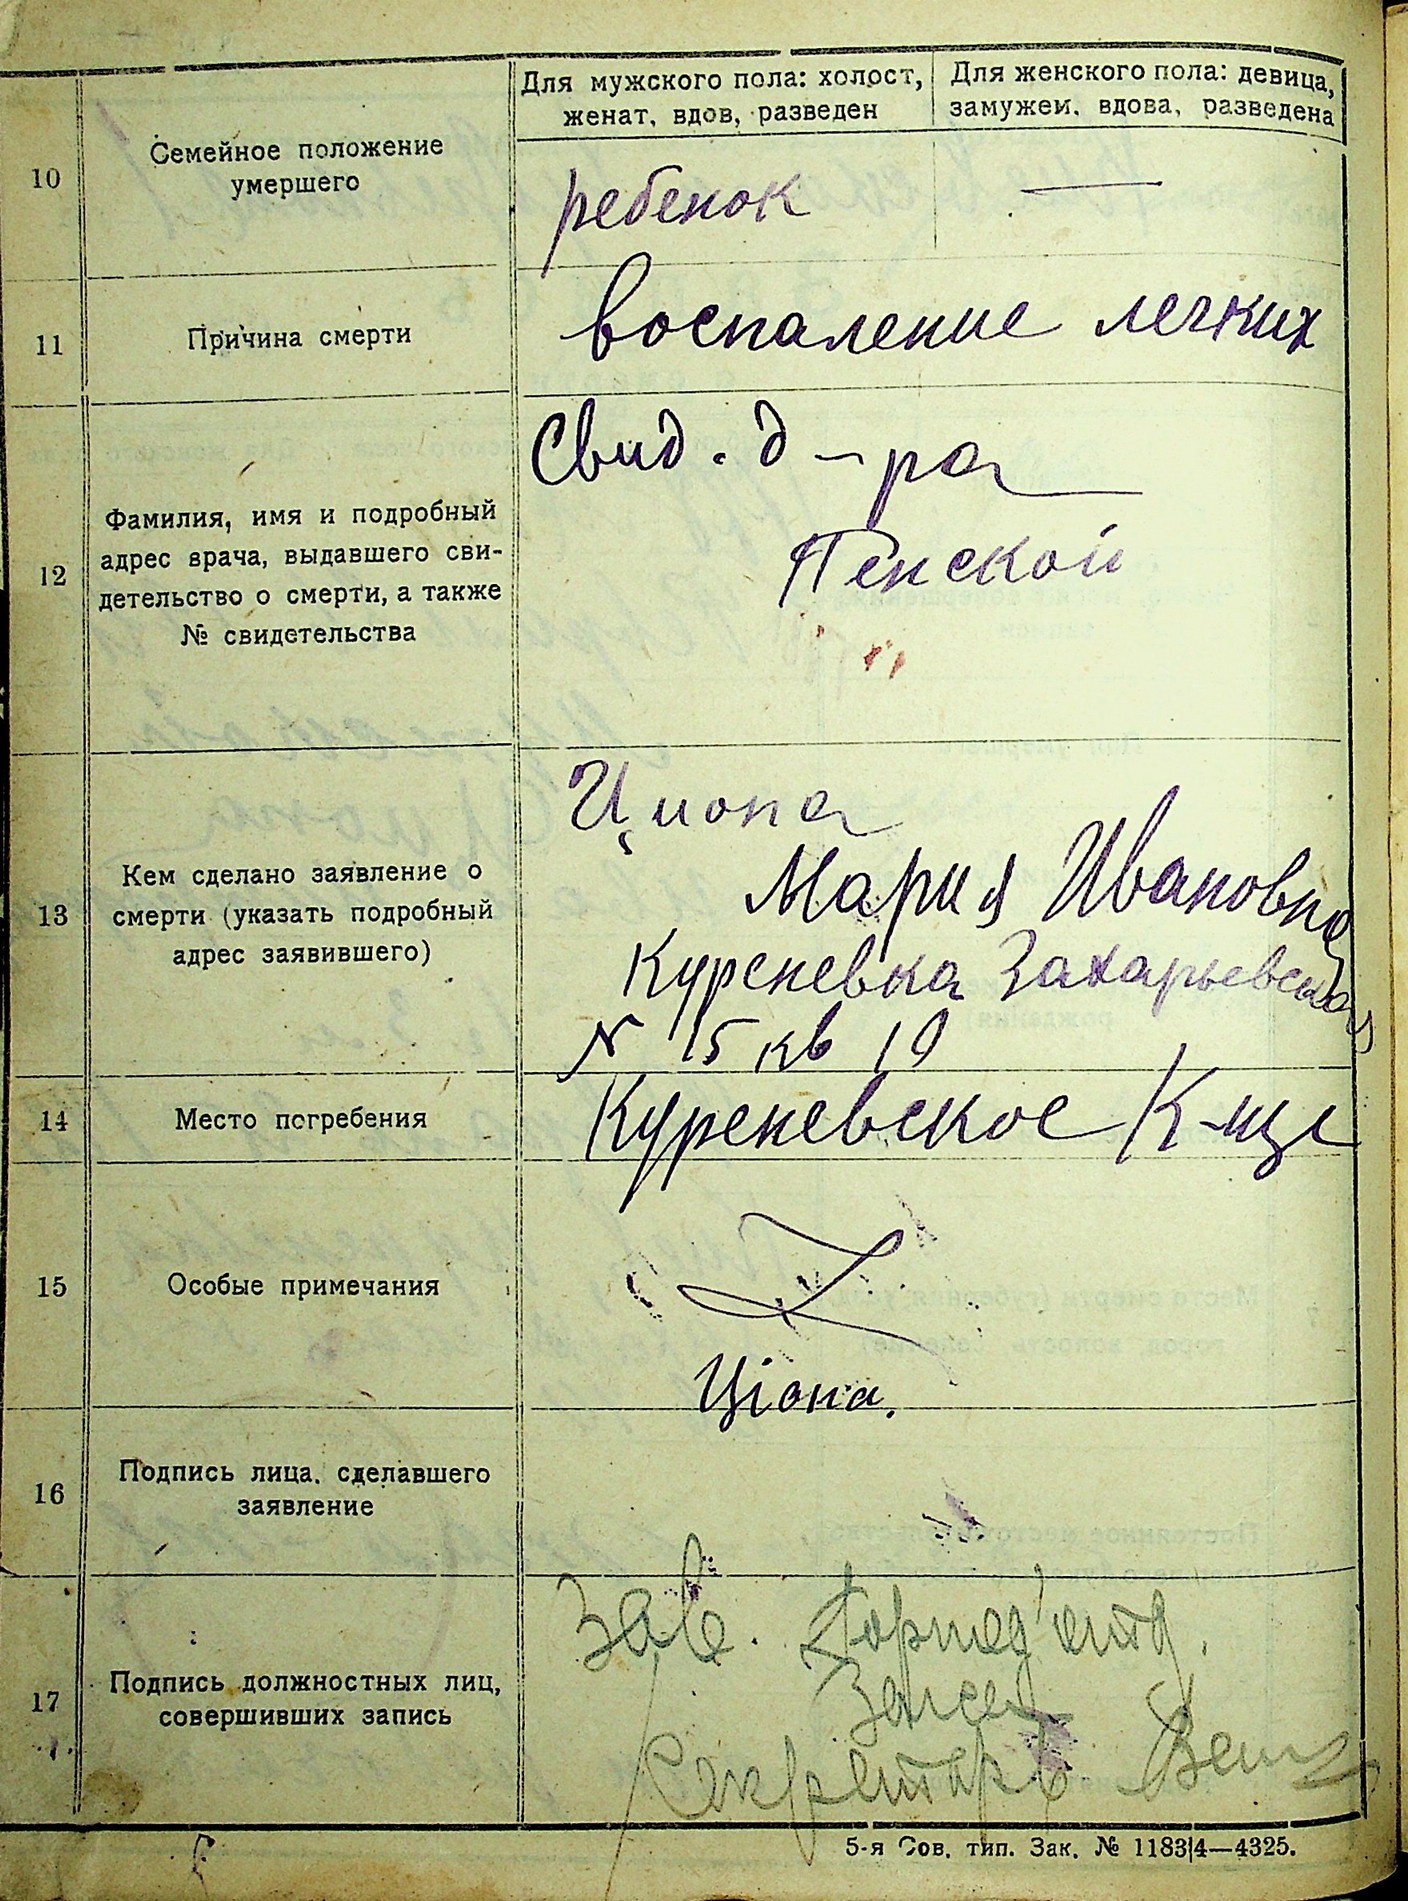 Для мужского пола: холост,
женат, вдов, разведен
Для женского пола: девица,
замужем, вдова, разведена
10
Семейное положение
умершего
ребенок
—
11
Причина смерти
воспаление легких
12
Фамилия, имя и подробный
адрес врача, выдавшего сви-
детельство о смерти, а также
№ свидетельства
Свид. д-ра
Пенской
13
Кем сделано заявление о
смерти (указать подробный
адрес заявившего)
Циона
Мария Ивановна
Куреневка Захарьевская
N 15 кв 19
14
Место погребения
Куреневское К-ще
15
Особые примечания
Ціона.
16
Подпись лица, сделавшего
заявление
17
Подпись должностных лиц,
совершивших запись
Зав.
Секретарь
5-я Сов. тип. Зак. № 1183|4—4325.